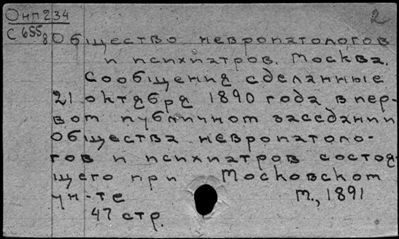 Онп 234
2
С 655
8 Общество невропатологов
и психиатров. Москва.
Сообщения сделанные
21 октября 1890 года в пер-
вом публичном заседании
Общества невропатоло-
гов и психиатров состоя-
щего при Московском
ун-те
М., 1891
47 стр.